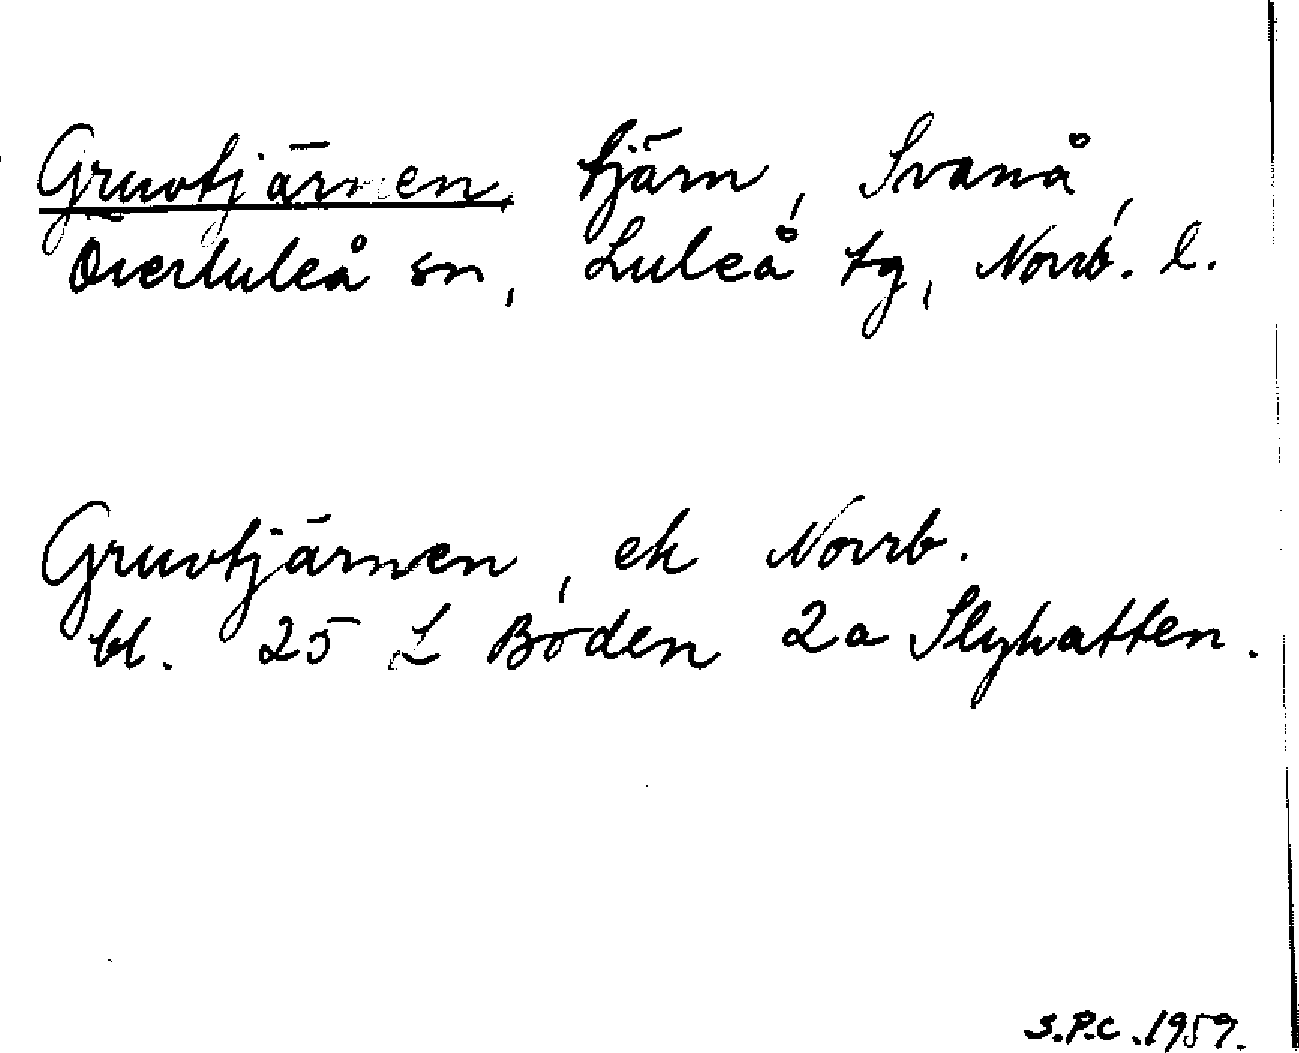 Gruvtjärnen, tjärn, Svanå,
Överluleå sn, Luleå tg, Norrb. l.
Gruvtjärnen, ek Norrb.
bl. 25 L Boden 2a Slyhatten.
S.P.C. 1959.